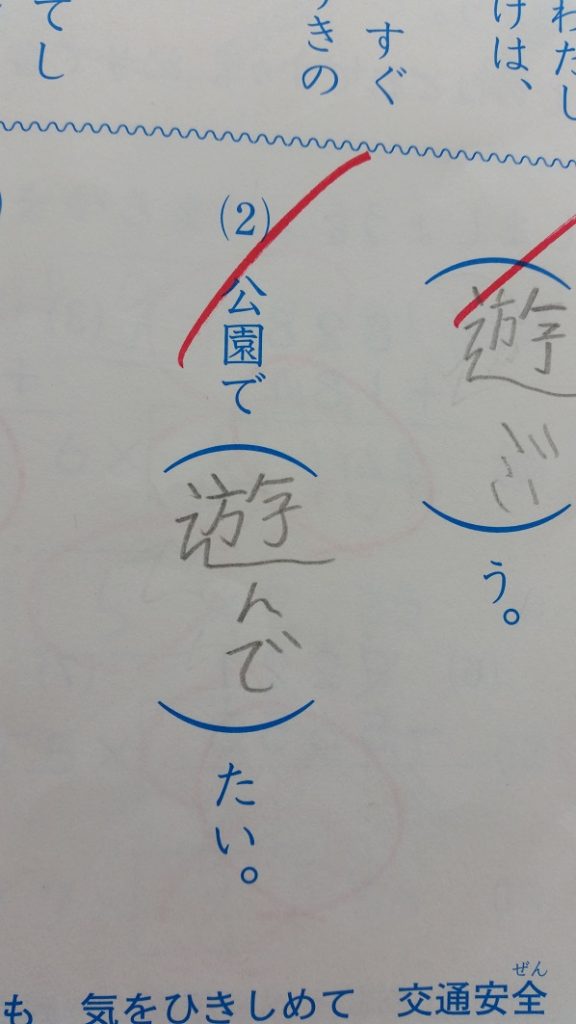 わたし
けは、
すぐ
きの
てし
(遊 )う。
(2) 公園で(遊んで)たい。
も 気をひきしめて 交通安全
ぜん